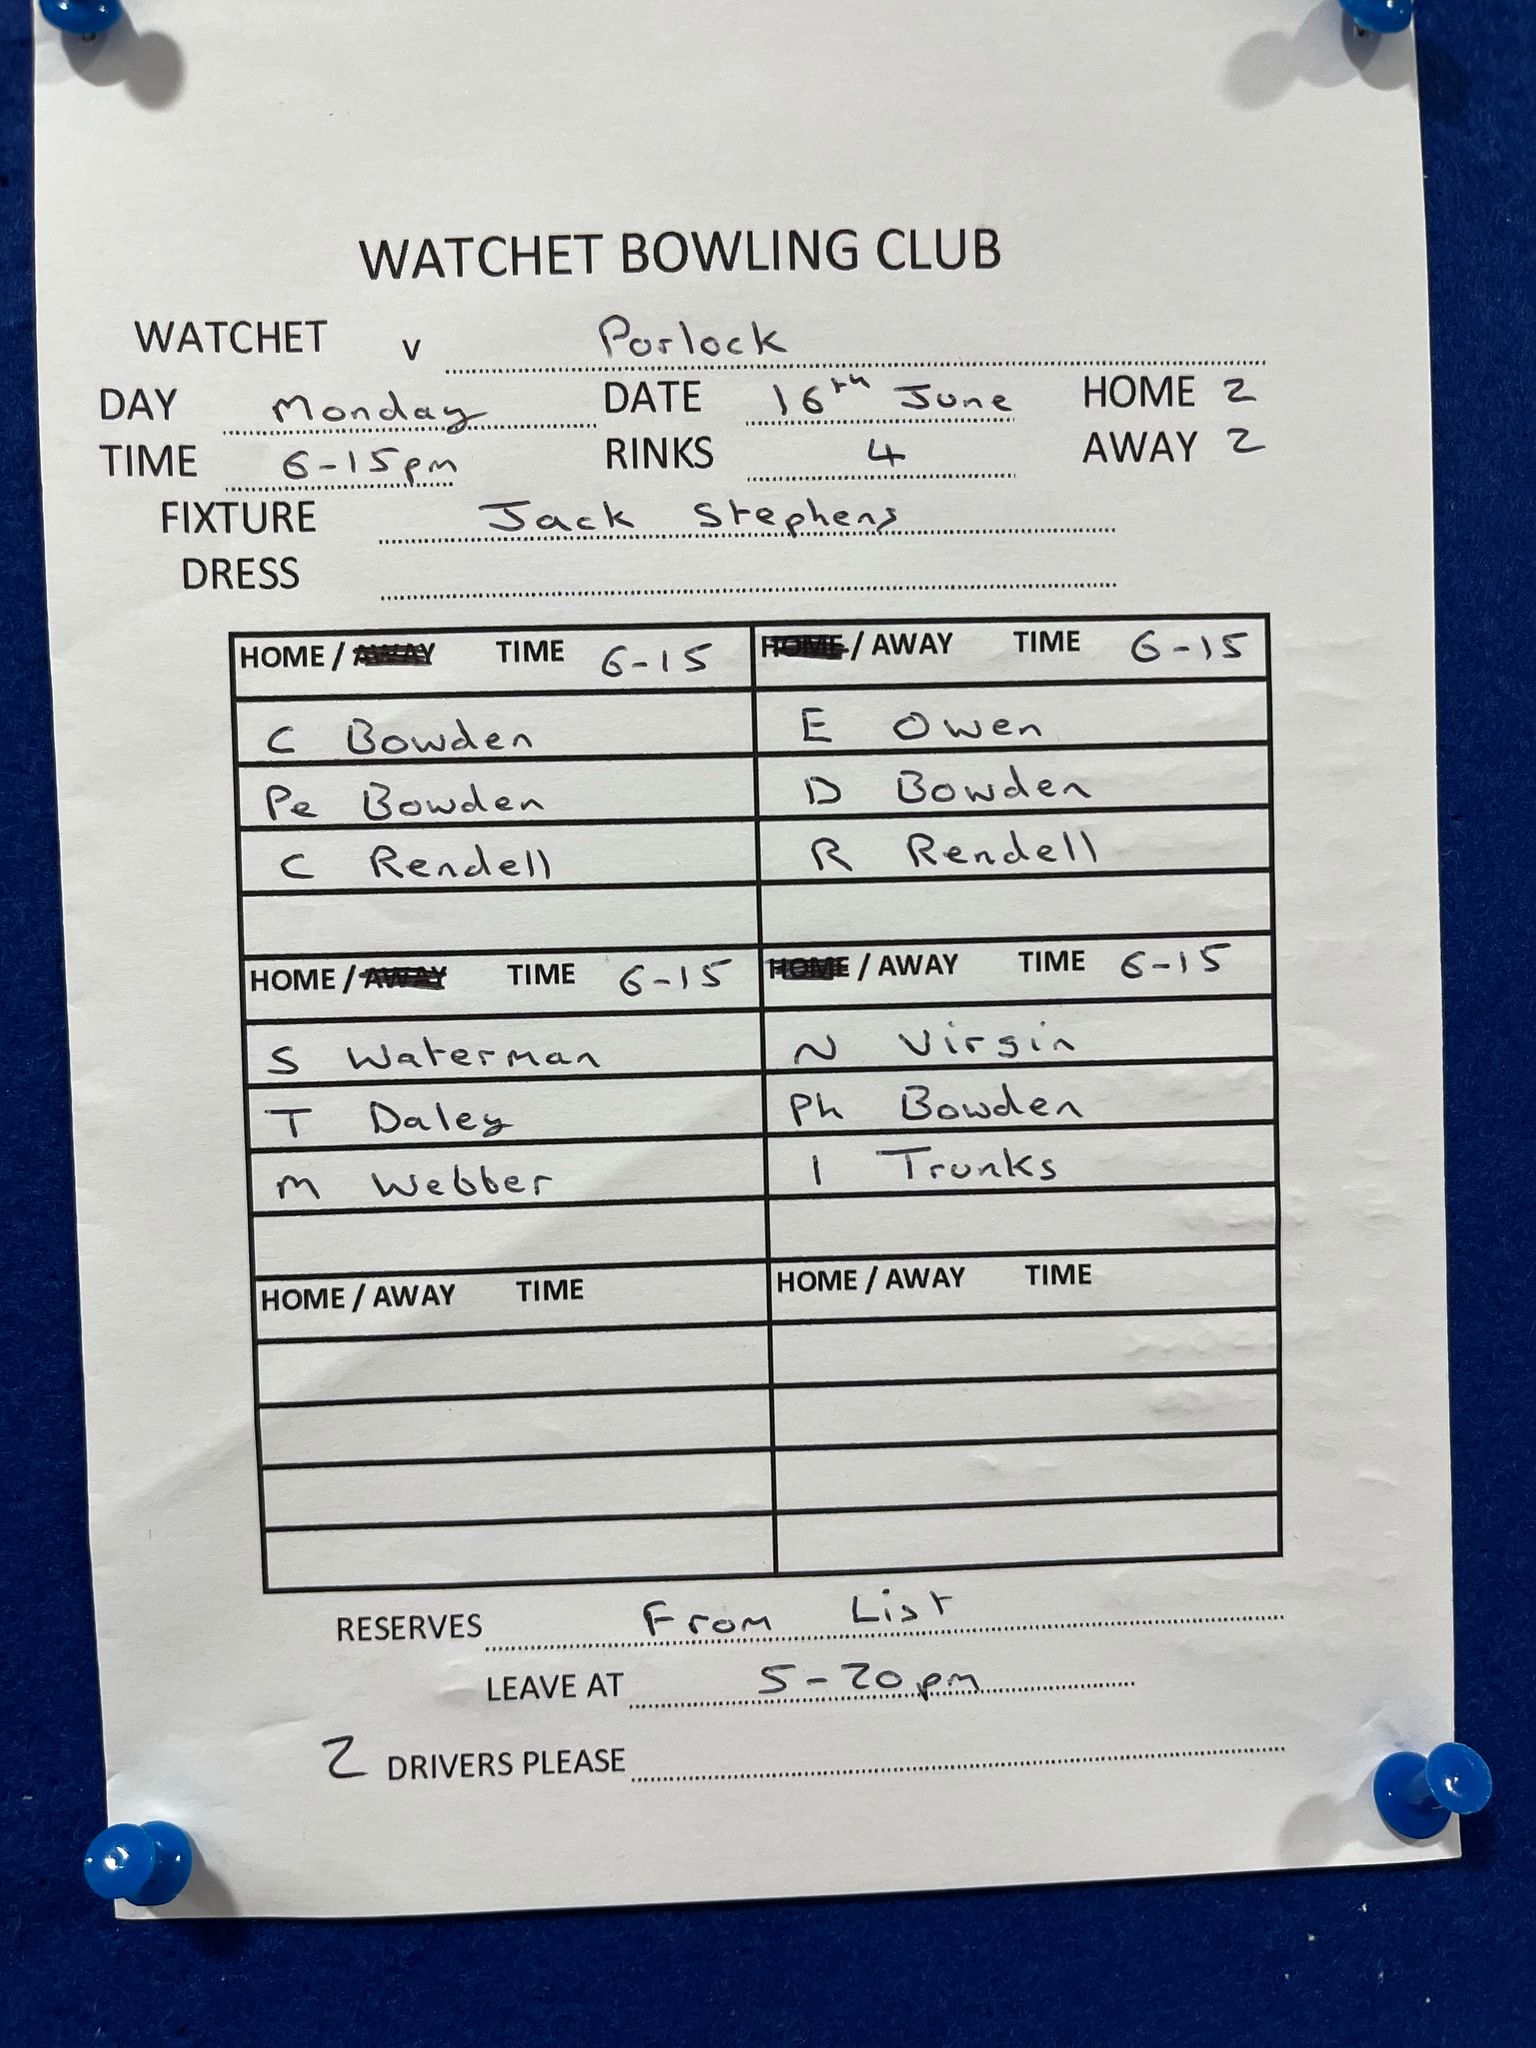 WATCHET BOWLING CLUB
WATCHET v Porlock
DAY Monday DATE 16th June HOME 2
TIME 6-15pm RINKS 4 AWAY 2
FIXTURE Jack Stephens
DRESS
HOME / AWAY TIME 6-15 HOME / AWAY TIME 6-15
C Bowden E Owen
Pe Bowden D Bowden
C Rendell R Rendell
HOME / AWAY TIME 6-15 HOME / AWAY TIME 6-15
S Waterman N Virgin
T Daley Ph Bowden
M Webber I Trunks
HOME / AWAY TIME HOME / AWAY TIME
RESERVES From List
LEAVE AT 5-20pm
2 DRIVERS PLEASE